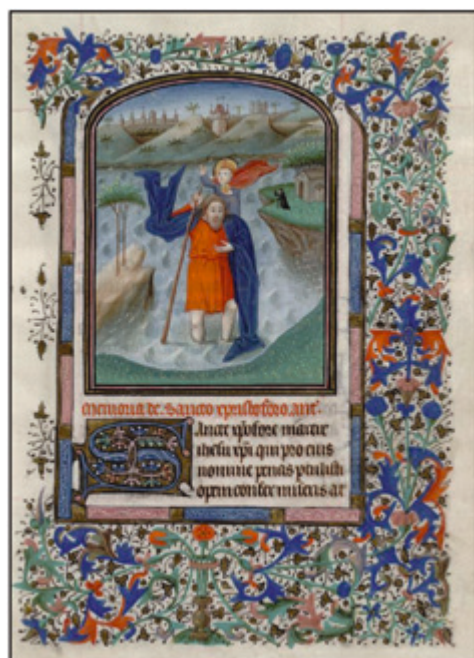 Memoria de Sancto xpristoforo. ant.
Sancte xpofore martir
ihesu xpi qui pro eius
nomine penas pertulisti
opem confer miseris at